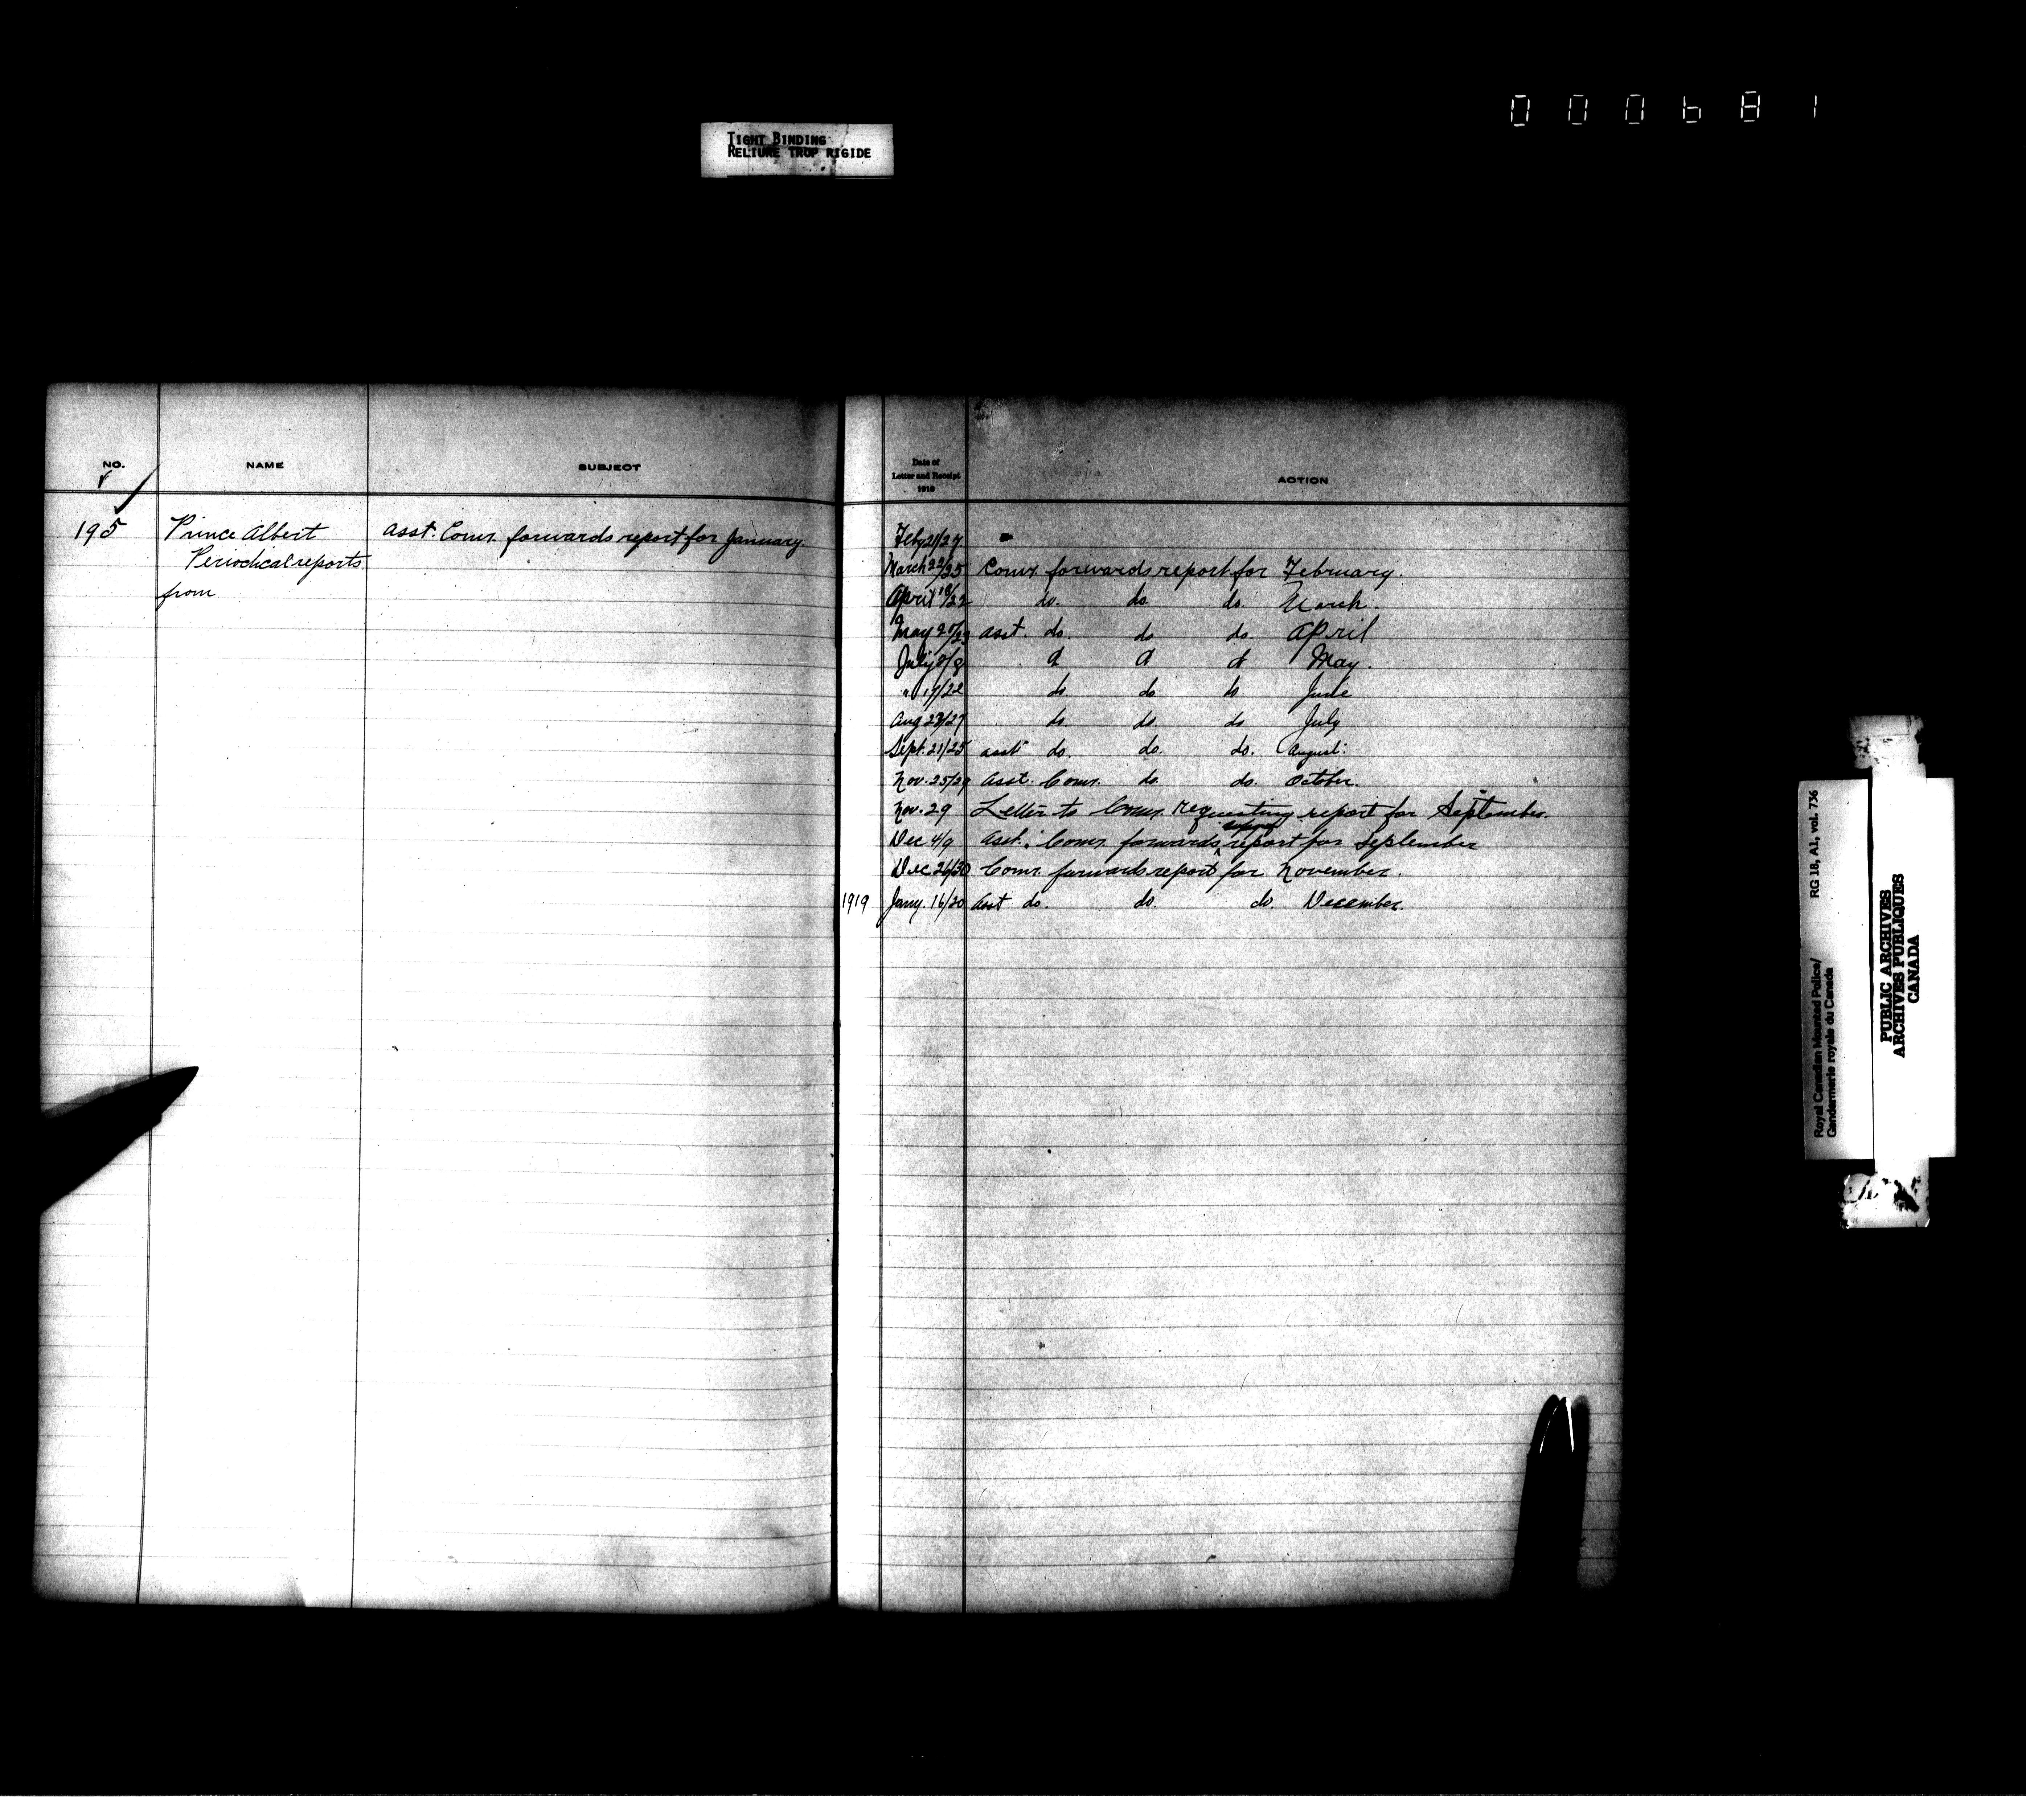 000681
TIGHT BINDING
RELIURE TROP RIGIDE
NO. NAME SUBJECT
195 Prince Albert Asst. Comr. forwards report for January.
Periodical reports
from
Date of
Letter and Receipt
1918
ACTION
Feby 21/27
March 22/25 Comr forwards report for February.
April 18/22 do. do. do. March.
May 20/23 Asst. do. do do April
July 8/8 d d d May.
" 17/22 do do do. June
Aug 23/27 do do do July
Sept. 21/25 Asst do. do. do. August.
Nov. 25/29 Asst. Comr. do. do. October.
Nov. 29 Letter to Comr. requesting report for September.
Dec 4/9 Asst. Comr. forwards report for September
Dec. 26/30 Comr. forwards report for November.
1919 Jany. 16/20 Asst do. do. do. December.
Royal Canadian Mounted Police/
Gendarmerie royale du Canada
RG 18, A1, vol. 736
PUBLIC ARCHIVES
ARCHIVES PUBLIQUES
CANADA